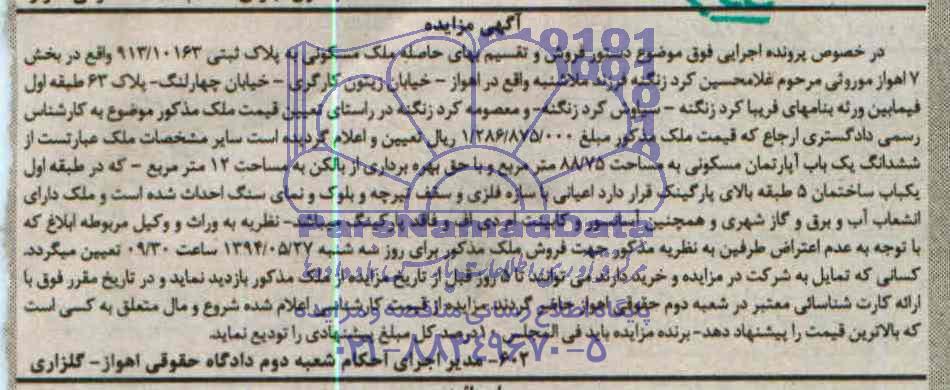 آگهی مزایده
در خصوص پرونده اجرایی فوق موضوع دستور فروش و تقسیم بهای حاصله ملک مسکونی به پلاک ثبتی ۹۱۳/۱۰۱۶۳ واقع در بخش
۷ اهواز موروثی مرحوم غلامحسین کرد زنگنه فرزند ملاشنبه واقع در اهواز – خیابان زیتون کارگری – خیابان چهارلنگ- پلاک ۶۳ طبقه اول
فیمابین ورثه بنامهای فریبا کرد زنگنه – کرد زنگنه- و معصومه کرد زنگنه در راستای تعیین قیمت ملک مذکور موضوع به کارشناس
رسمی دادگستری ارجاع که قیمت ملک مذکور مبلغ ۱/۲۸۶/۸۷۵/۰۰۰ ریال تعیین و اعلام گردیده است سایر مشخصات ملک عبارتست از
ششدانگ یک باب آپارتمان مسکونی به مساحت ۸۸/۷۵ متر مربع و با حق بهره برداری از بالکن به مساحت ۱۲ متر مربع – که در طبقه اول
یکباب ساختمان ۵ طبقه بالای پارگینگ قرار دارد اعیانی با سازه فلزی و سقف تیرچه و بلوک و نمای سنگ احداث شده است و ملک دارای
انشعاب آب و برق و گاز شهری و همچنین آسانسور و کابینت ام دی اف و فاقد پارکینگ میباشد- نظریه به وراث و وکیل مربوطه ابلاغ که
با توجه به عدم اعتراض طرفین به نظریه مذکور جهت فروش ملک مذکور برای روز سه شنبه ۱۳۹۴/۰۵/۲۷ ساعت ۰۹/۳۰ تعیین میگردد.
کسانی که تمایل به شرکت در مزایده و خرید دارند می توانند تا ۵ روز قبل از تاریخ مزایده از ملک مذکور بازدید نماید و در تاریخ مقرر فوق با
ارائه کارت شناسائی معتبر در شعبه دوم حقوقی اهواز حاضر گردند مزایده از قیمت کارشناسی اعلام شده شروع و مال متعلق به کسی است
که بالاترین قیمت را پیشنهاد دهد- برنده مزایده باید فی المجلس ۱۰ درصد کل مبلغ پیشنهادی را تودیع نماید.
۶۰۲- مدیر اجرای احکام شعبه دوم دادگاه حقوقی اهواز- گلزاری
ParsNamadData
پایگاه اطلاع رسانی مناقصه و مزایده
۰۲۱-۸۸۳۴۹۶۷۰-۵